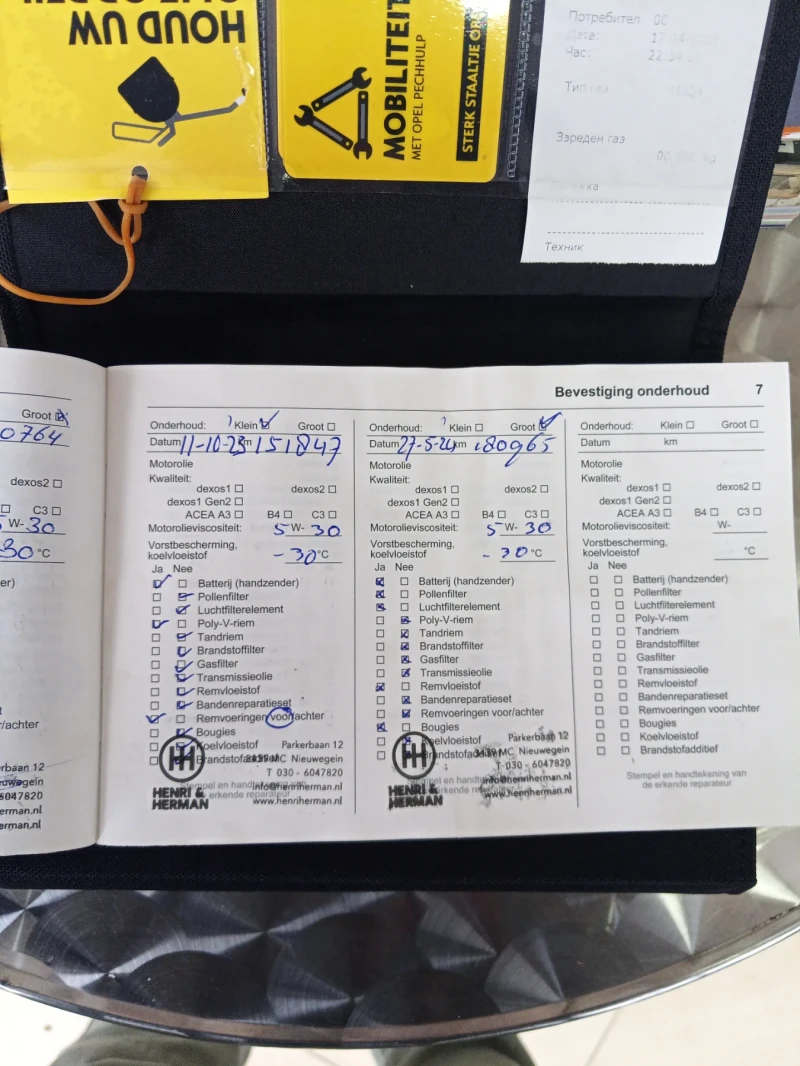 HOUD UW
MOBILITEIT
MET OPEL PECHHULP
Потребител ОС
Дата:
Час:
Тип газ
Зареден газ
Техник
Bevestiging onderhoud 7
Groot
0764
C3
W-30
30 °C
er)
r/achter
rbaan 12
uwegein
6047820
erman.nl
erman.nl
Onderhoud: Klein Groot
Datum 11-10-23 km 151847
Motorolie
Kwaliteit:
dexos1 dexos2
dexos1 Gen2
ACEA A3 B4 C3
Motorolieviscositeit: 5 W- 30
Vorstbescherming,
koelvloeistof -30 °C
Ja Nee
Batterij (handzender)
Pollenfilter
Luchtfilterelement
Poly-V-riem
Tandriem
Brandstoffilter
Gasfilter
Transmissieolie
Remvloeistof
Bandenreparatieset
Remvoeringen voor/achter
Bougies
Koelvloeistof
Brandstofadditief
Stempel en handtekening van
de erkende reparateur
HENRI &
HERMAN
Parkerbaan 12
3439 MC Nieuwegein
T 030 - 6047820
info@henriherman.nl
www.henriherman.nl
Onderhoud: Klein Groot
Datum 27-5-24 km 180965
Motorolie
Kwaliteit:
dexos1 dexos2
dexos1 Gen2
ACEA A3 B4 C3
Motorolieviscositeit: 5 W- 30
Vorstbescherming,
koelvloeistof - 30 °C
Ja Nee
Batterij (handzender)
Pollenfilter
Luchtfilterelement
Poly-V-riem
Tandriem
Brandstoffilter
Gasfilter
Transmissieolie
Remvloeistof
Bandenreparatieset
Remvoeringen voor/achter
Bougies
Koelvloeistof
Brandstofadditief
Stempel en handtekening van
de erkende reparateur
HENRI &
HERMAN
Parkerbaan 12
3439 MC Nieuwegein
T 030 - 6047820
info@henriherman.nl
www.henriherman.nl
Onderhoud: Klein Groot
Datum km
Motorolie
Kwaliteit:
dexos1 dexos2
dexos1 Gen2
ACEA A3 B4 C3
Motorolieviscositeit: W-
Vorstbescherming,
koelvloeistof °C
Ja Nee
Batterij (handzender)
Pollenfilter
Luchtfilterelement
Poly-V-riem
Tandriem
Brandstoffilter
Gasfilter
Transmissieolie
Remvloeistof
Bandenreparatieset
Remvoeringen voor/achter
Bougies
Koelvloeistof
Brandstofadditief
Stempel en handtekening van
de erkende reparateur